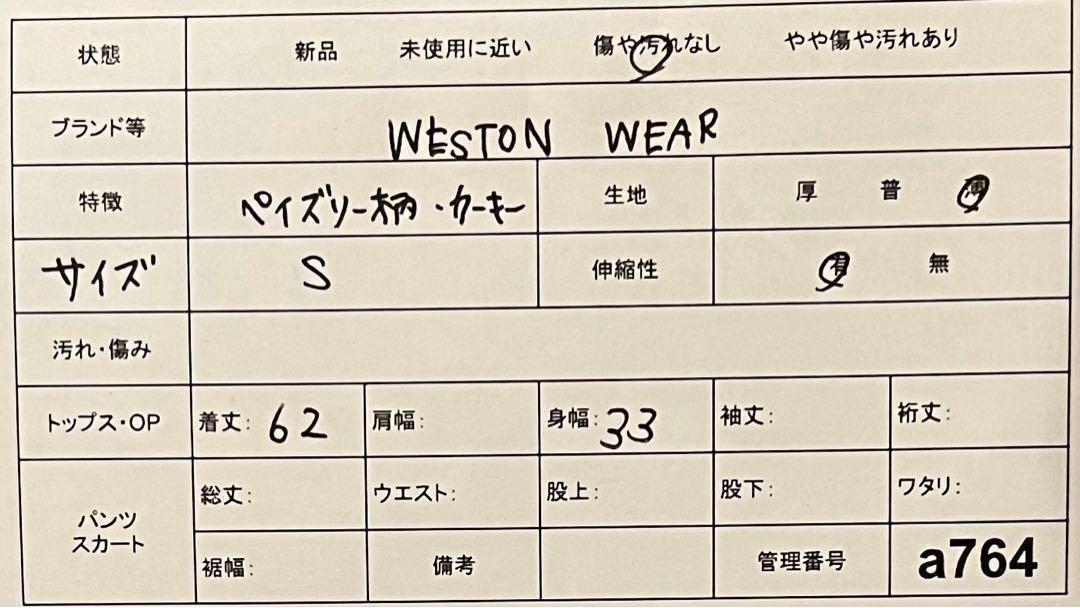 状態 新品 未使用に近い 傷や汚れなし やや傷や汚れあり
ブランド等 WESTON WEAR
特徴 ペイズリー柄・カーキー 生地 厚 普 薄
サイズ S 伸縮性 有 無
汚れ・傷み
トップス・OP 着丈: 62 肩幅: 身幅: 33 袖丈: 裄丈:
パンツ
スカート
総丈: ウエスト: 股上: 股下: ワタリ:
裾幅: 備考 管理番号 a764